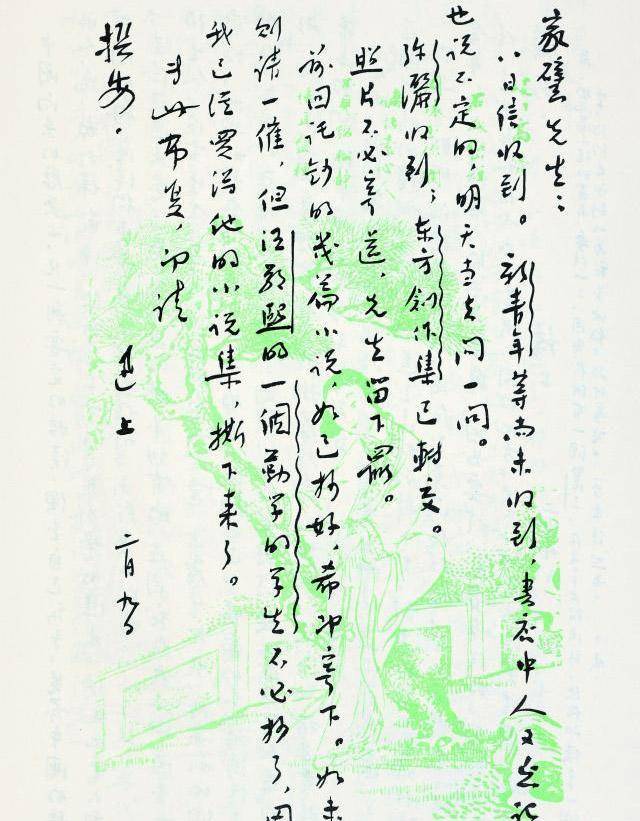 家璧先生：
八日信收到。新青年等尚未收到，書店中人又
也说不定的，明天当去问一问。
弥灑收到；东方創作集已轉交。
照片不必寄還，先生留下罷。
前回託鈔的幾篇小说，如已抄好，希即寄下。如未
则请一催，但汪敬熙的一個勤学的学生不必抄了，因
我已經買得他的小说集，撕下来了。
专此布复，即请
撰安。
迅上 二月九日